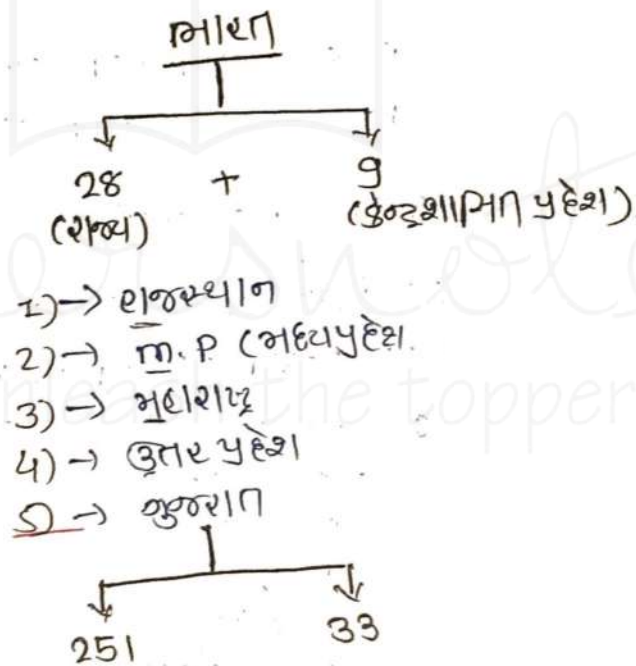 ભારત
28 + 9
(રાજ્ય) (કેન્દ્રશાસિત પ્રદેશ)
1) → રાજસ્થાન
2) → M.P (મધ્યપ્રદેશ
3) → મહારાષ્ટ્ર
4) → ઉત્તર પ્રદેશ
5) → ગુજરાત
251 33